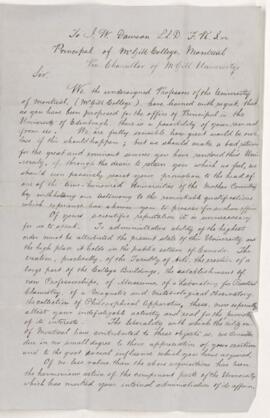 To J. W. Dawson LL.D. F.R.S.
Principal of McGill College, Montreal
Vice Chancellor of McGill University
Sir,
We the undersigned Professors of the University
of Montreal, (McGill College), have learned with regret, that
as you have been proposed for the office of Principal in the
University of Edinburgh, there is a possibility of your removal
from us. We are fully sensible how great would be our
loss if this should happen; but we should make a bad return
for the great and eminent services you have rendered this Univ
ersity, if through the desire to retain you which we feel, we
should even passively resist your promotion to the head of
one of the time-honoured Universities of the Mother Country
by withholding our testimony to the remarkable qualifications
which experience has shewn you to possess for such an office.
Of your scientific reputation it is unnecessary
for us to speak. To administrative ability of the highest
order must be attributed the present state of this University and
the high place it holds in the public esteem of Canada. The
creation, practically, of the Faculty of Arts, the erection of a
large part of the College Buildings, the establishment of
new Professorships, of Museums, of a Laboratory for Practical
Chemistry, of a Magnetic and Meteorological Observatory,
the collection of Philosophical Apparatus, these, more especially
attest your indefatigable activity and zeal for the promotion
of its interests. The liberality with which the citizens
of Montreal have contributed to these objects is, we consider,
due in no small degree to their appreciation of your exertions
and to the great social influence which you have acquired.
Of no less value than the above acquisitions has been
the harmonious action of the component parts of the University
which has marked your internal administration of its affairs,